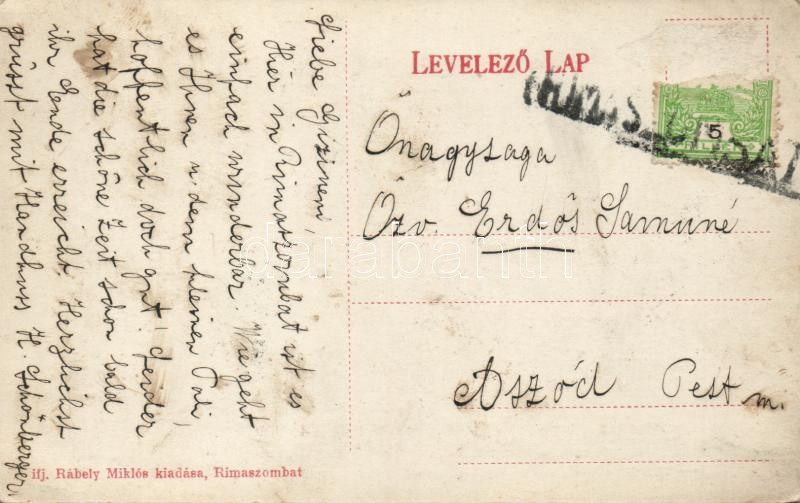 Liebe Gizineni,
Hier in Rimaszombat ist es
einfach wunderbar. Wie geht
es Ihnen u. dem kleinen Pali,
hoffentlich doch gut! Leider
hat die schöne Zeit schon bald
ihr Ende erreicht. Herzlichst
grüsst mit Handkuss H. Schönberger
LEVELEZŐ LAP
5
Őnagysaga
Özv. Erdős Samuné
Aszód Pest m.
ifj. Rábely Miklós kiadása, Rimaszombat
darabanth